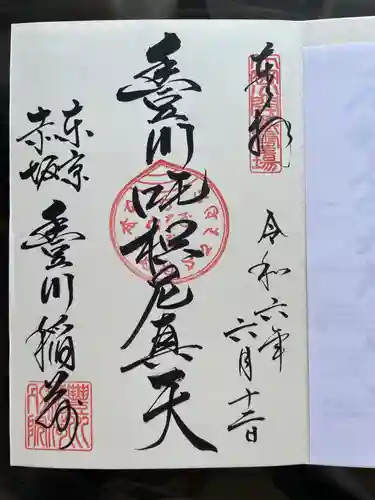 奉拝
令和六年
六月十二日
豊川吒枳尼真天
東京
赤坂
豊川稲荷